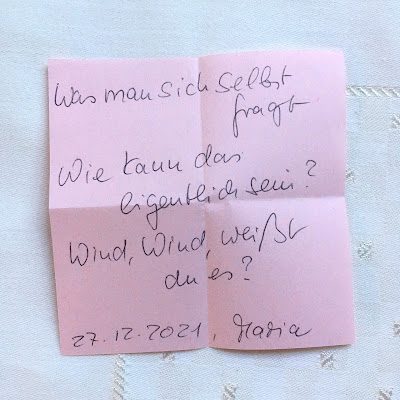 Was man sich selbst
fragt
Wie kann das
eigentlich sein?
Wind, Wind, weißt
du es?
27.12.2021, Maria